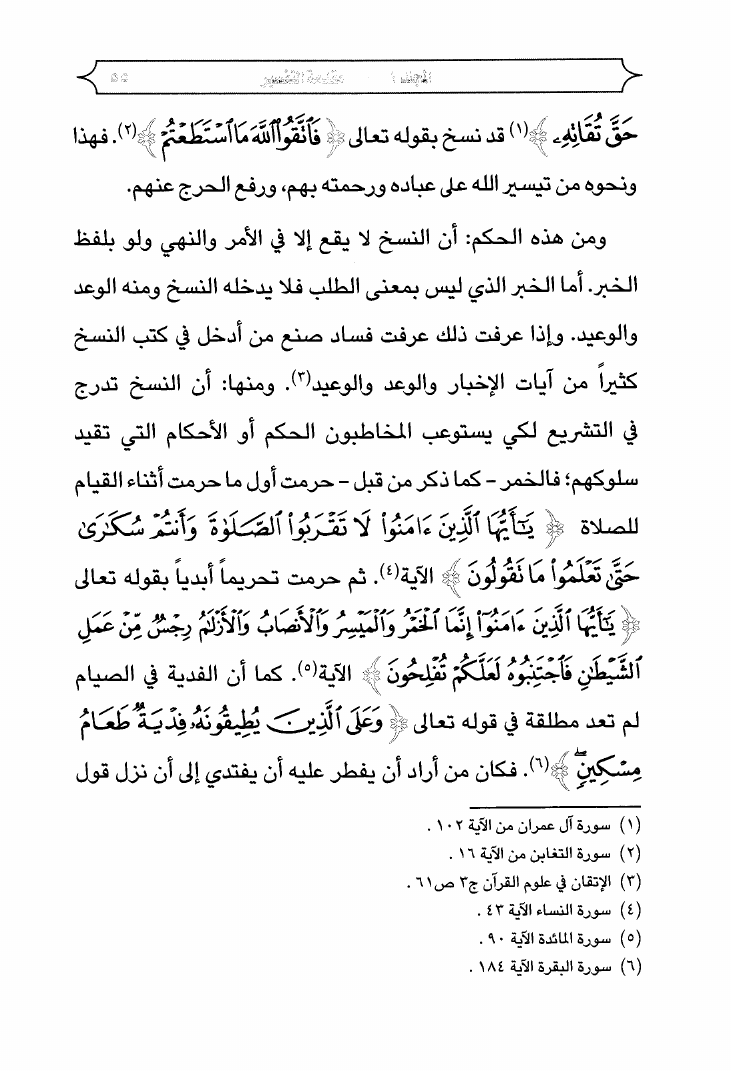 المجلد ١ مقدمة التفسير ٥٥
حَقَّ تُقَاتِهِۦ ﴾(١) قد نسخ بقوله تعالى ﴿ فَٱتَّقُواْ ٱللَّهَ مَا ٱسْتَطَعْتُمْ ﴾(٢). فهذا
ونحوه من تيسير الله على عباده ورحمته بهم، ورفع الحرج عنهم.
ومن هذه الحكم: أن النسخ لا يقع إلا في الأمر والنهي ولو بلفظ
الخبر. أما الخبر الذي ليس بمعنى الطلب فلا يدخله النسخ ومنه الوعد
والوعيد. وإذا عرفت ذلك عرفت فساد صنع من أدخل في كتب النسخ
كثيراً من آيات الإخبار والوعد والوعيد(٣). ومنها: أن النسخ تدرج
في التشريع لكي يستوعب المخاطبون الحكم أو الأحكام التي تقيد
سلوكهم؛ فالخمر – كما ذكر من قبل – حرمت أول ما حرمت أثناء القيام
للصلاة ﴿ يَٰٓأَيُّهَا ٱلَّذِينَ ءَامَنُواْ لَا تَقْرَبُواْ ٱلصَّلَوٰةَ وَأَنتُمْ سُكَٰرَىٰ
حَتَّىٰ تَعْلَمُواْ مَا تَقُولُونَ ﴾ الآية(٤). ثم حرمت تحريماً أبدياً بقوله تعالى
﴿ يَٰٓأَيُّهَا ٱلَّذِينَ ءَامَنُوٓاْ إِنَّمَا ٱلْخَمْرُ وَٱلْمَيْسِرُ وَٱلْأَنصَابُ وَٱلْأَزْلَٰمُ رِجْسٌ مِّنْ عَمَلِ
ٱلشَّيْطَٰنِ فَٱجْتَنِبُوهُ لَعَلَّكُمْ تُفْلِحُونَ ﴾ الآية(٥). كما أن الفدية في الصيام
لم تعد مطلقة في قوله تعالى ﴿ وَعَلَى ٱلَّذِينَ يُطِيقُونَهُۥ فِدْيَةٌ طَعَامُ
مِسْكِينٍ ۖ ﴾(٦). فكان من أراد أن يفطر عليه أن يفتدي إلى أن نزل قول
(١) سورة آل عمران من الآية ١٠٢ .
(٢) سورة التغابن من الآية ١٦ .
(٣) الإتقان في علوم القرآن ج٣ ص٦١ .
(٤) سورة النساء الآية ٤٣ .
(٥) سورة المائدة الآية ٩٠ .
(٦) سورة البقرة الآية ١٨٤ .